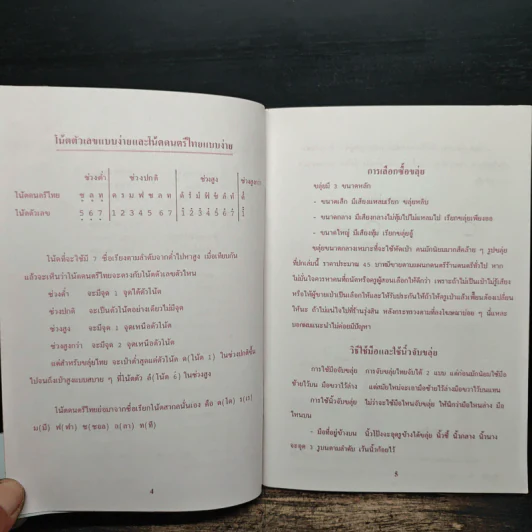 โน้ตตัวเลขแบบง่ายและโน้ตดนตรีไทยแบบง่าย
ช่วงต่ำ ช่วงปกติ ช่วงสูง ช่วงสูงกว่า
โน้ตดนตรีไทย ซ ล ท ด ร ม ฟ ซ ล ท ด ร ม ฟ ซ ล ท ด
โน้ตตัวเลข 5 6 7 1 2 3 4 5 6 7 1 2 3 4 5 6 7 1
โน้ตที่จะใช้มี 7 ชื่อเรียงตามลำดับจากต่ำไปหาสูง เมื่อเทียบกัน
แล้วจะเห็นว่าโน้ตดนตรีไทยจะตรงกับโน้ตตัวเลขตัวไหน
ช่วงต่ำ จะมีจุด 1 จุดใต้ตัวโน้ต
ช่วงปกติ จะเป็นตัวโน้ตอย่างเดียวไม่มีจุด
ช่วงสูง จะมี 1 จุดเหนือตัวโน้ต
ช่วงสูงกว่า จะมีจุด 2 จุดเหนือตัวโน้ต
แต่สำหรับขลุ่ยไทย จะเป่าต่ำสุดแค่ตัวโน้ต ด(โน้ต 1) ในช่วงปกติขึ้น
ไปจนถึงเป่าสูงแบบสบาย ๆ ที่โน้ตตัว ล(โน้ต 6) ในช่วงสูง
โน้ตดนตรีไทยย่อมาจากชื่อเรียกโน้ตสากลนั่นเอง คือ ด(โด) ร(เร)
ม(มี) ฟ(ฟา) ซ(ซอล) ล(ลา) ท(ที)
4
การเลือกซื้อขลุ่ย
ขลุ่ยมี 3 ขนาดหลัก
- ขนาดเล็ก มีเสียงแหลมเรียก ขลุ่ยหลีบ
- ขนาดกลาง มีเสียงกลางไม่ทุ้มไปไม่แหลมไป เรียกขลุ่ยเพียงออ
- ขนาดใหญ่ มีเสียงทุ้ม เรียกขลุ่ยอู้
ขลุ่ยขนาดกลางเหมาะที่จะใช้หัดเป่า คนมักนิยมมากสุดด้วย ๆ รูปขลุ่ย
ที่ปกเล่มนี้ ราคาประมาณ 45 บาทมีขายตามแผนกดนตรีร้านดนตรีทั่วไป หาก
ไม่มั่นใจควรหาคนที่ถนัดหรือครูผู้สอนเลือกให้ดีกว่า เพราะถ้าไม่เป็นเป่าไม่รู้เสียง
หรือให้ผู้ขายเป่าเป็นเลือกให้และให้รับประกันให้ถ้าให้ครูเป่าแล้วเพี้ยนต้องเปลี่ยน
บอกขณะแนะนำไม่ค่อยมีปัญหา
วิธีใช้มือและใช้นิ้วจับขลุ่ย
การใช้มือจับขลุ่ย การจับขลุ่ยไทยจับได้ 2 แบบ แต่ก่อนมักนิยมใช้มือ
ซ้ายไว้บน มือขวาไว้ล่าง แต่สมัยใหม่จะเอามือซ้ายไว้ล่างมือขวาไว้บนแทน
การใช้นิ้วจับขลุ่ย ไม่ว่าจะใช้มือไหนจับขลุ่ย ให้นึกว่ามือไหนล่าง มือ
ไหนบน
- มือที่อยู่ข้างบน นิ้วโป้งจะอุดรูข้างใต้ขลุ่ย นิ้วชี้ นิ้วกลาง นิ้วนาง
จะอุด 3 รูบนตามลำดับ เว้นนิ้วก้อยไว้
5